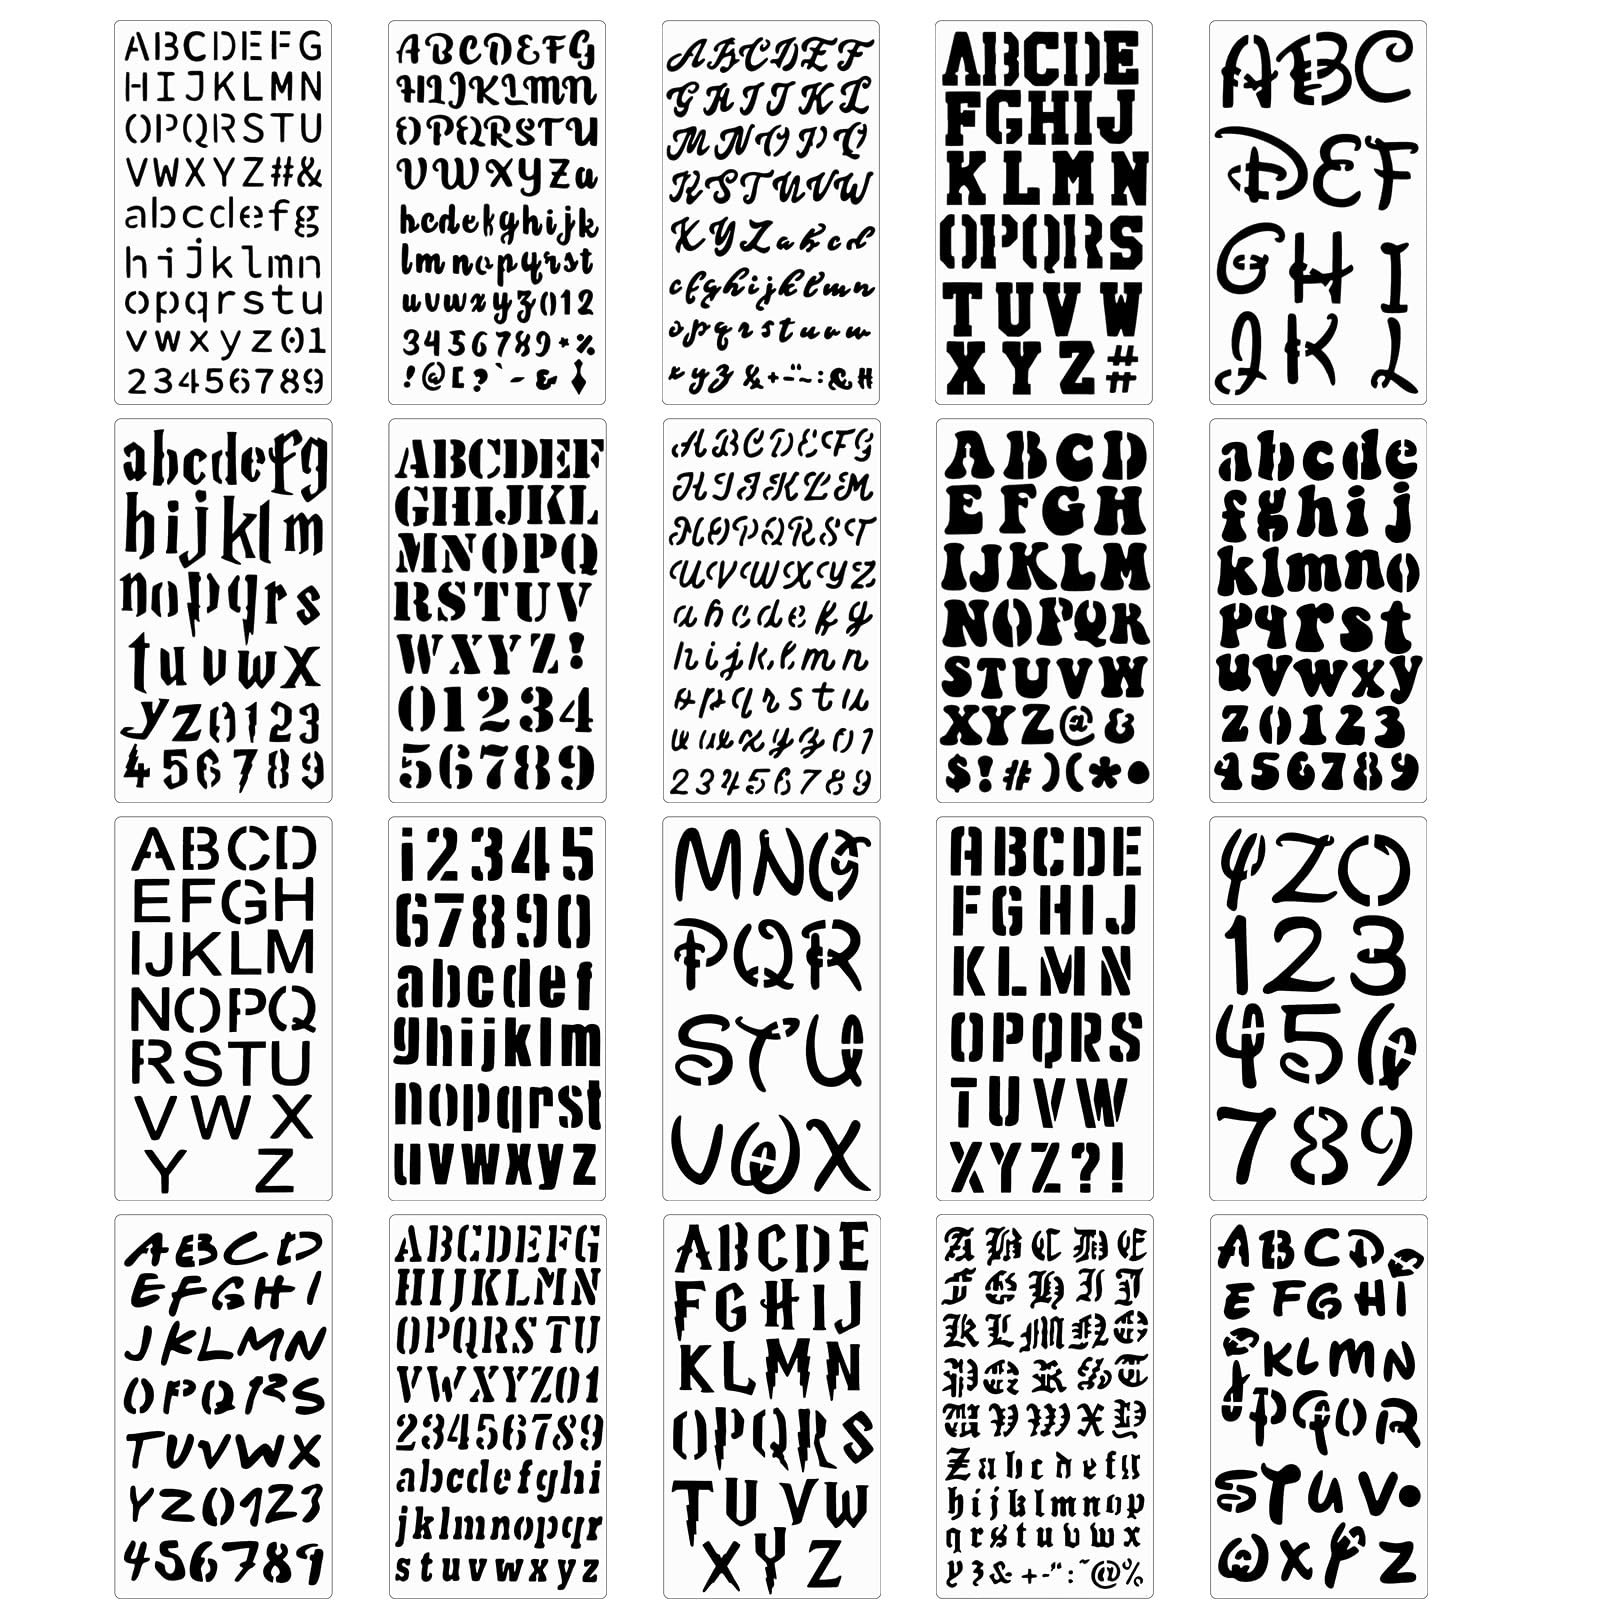 ABCDEFG
HIJKLMN
OPQRSTU
VWXYZ#&
abcdefg
hijklmn
opqrstu
vwxyz01
23456789
ABCDEFG
HIJKLMN
OPQRSTU
VWXYZa
bcdefghijk
lmnopqrst
uvwxyz012
3456789*%
!@[?`-&♦
ABCDEF
GHIJKL
MNOPQ
RSTUVW
XYZabcd
efghijklmn
opqrstuvw
xyz&+-"~:&#
ABCDE
FGHIJ
KLMN
OPQRS
TUVW
XYZ#
ABC
DEF
GHI
JKL
abcdefg
hijklm
nopqrs
tuvwx
yz0123
456789
ABCDEF
GHIJKL
MNOPQ
RSTUV
WXYZ!
01234
56789
ABCDEFG
HIJKLM
NOPQRST
UVWXYZ
abcdefg
hijklmn
opqrstu
vwxyz01
23456789
ABCD
EFGH
IJKLM
NOPQR
STUVW
XYZ@&
$!#)(*●
abcde
fghij
klmno
pqrst
uvwxy
z0123
456789
ABCD
EFGH
IJKLM
NOPQ
RSTU
VWX
YZ
i2345
67890
abcdef
ghijklm
nopqrst
uvwxyz
MNO
PQR
STU
VWX
ABCDE
FGHIJ
KLMN
OPQRS
TUVW
XYZ?!
YZ0
123
456
789
ABCD
EFGHI
JKLMN
OPQRS
TUVWX
YZ0123
456789
ABCDEFG
HIJKLMN
OPQRSTU
VWXYZ01
23456789
abcdefghi
jklmnopqr
stuvwxyz
ABCDE
FGHIJ
KLMN
OPQRS
TUVW
XYZ
ABCDE
FGHIJ
KLMNO
PQRST
UVWXY
Zabcdefg
hijklmnop
qrstuvwx
yz&+-":~@%
ABCD
EFGHI
JKLMN
PQOR
STUV●
WXYZ